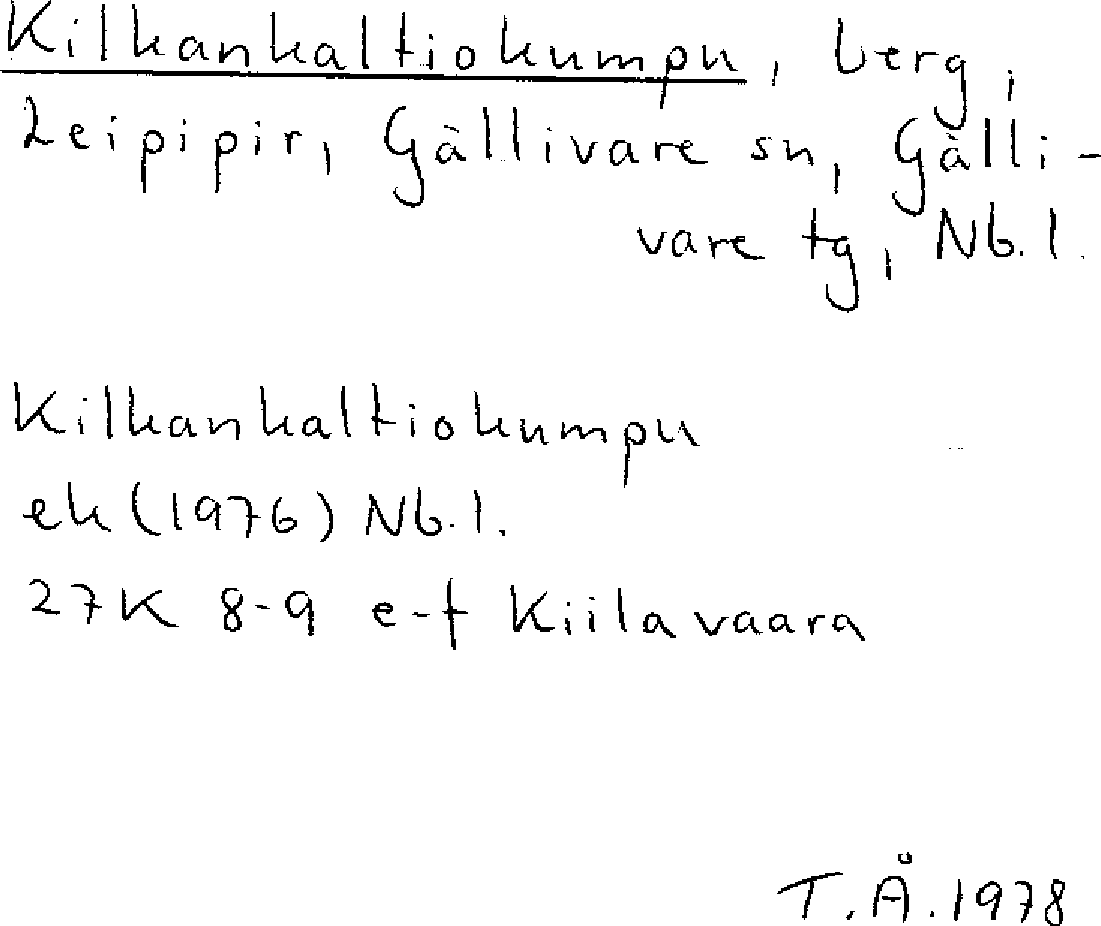 Kilkankaltiokumpu, berg,
Leipipir, Gällivare sn, Gälli-
vare tg, Nb. l.
Kilkankaltiokumpu
ek (1976) Nb. l.
27K 8-9 e-f Kiilavaara
T. Å. 1978